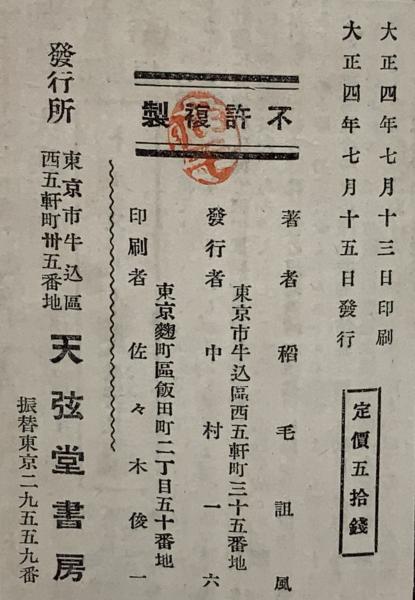 大正四年七月十三日印刷
大正四年七月十五日發行
定價五拾錢
不許複製
著者稻毛詛風
東京市牛込區西五軒町三十五番地
發行者中村一六
東京麴町區飯田町二丁目五十番地
印刷者佐々木俊一
發行所
東京市牛込區
西五軒町卅五番地
天弦堂書房
振替東京二九五五九番